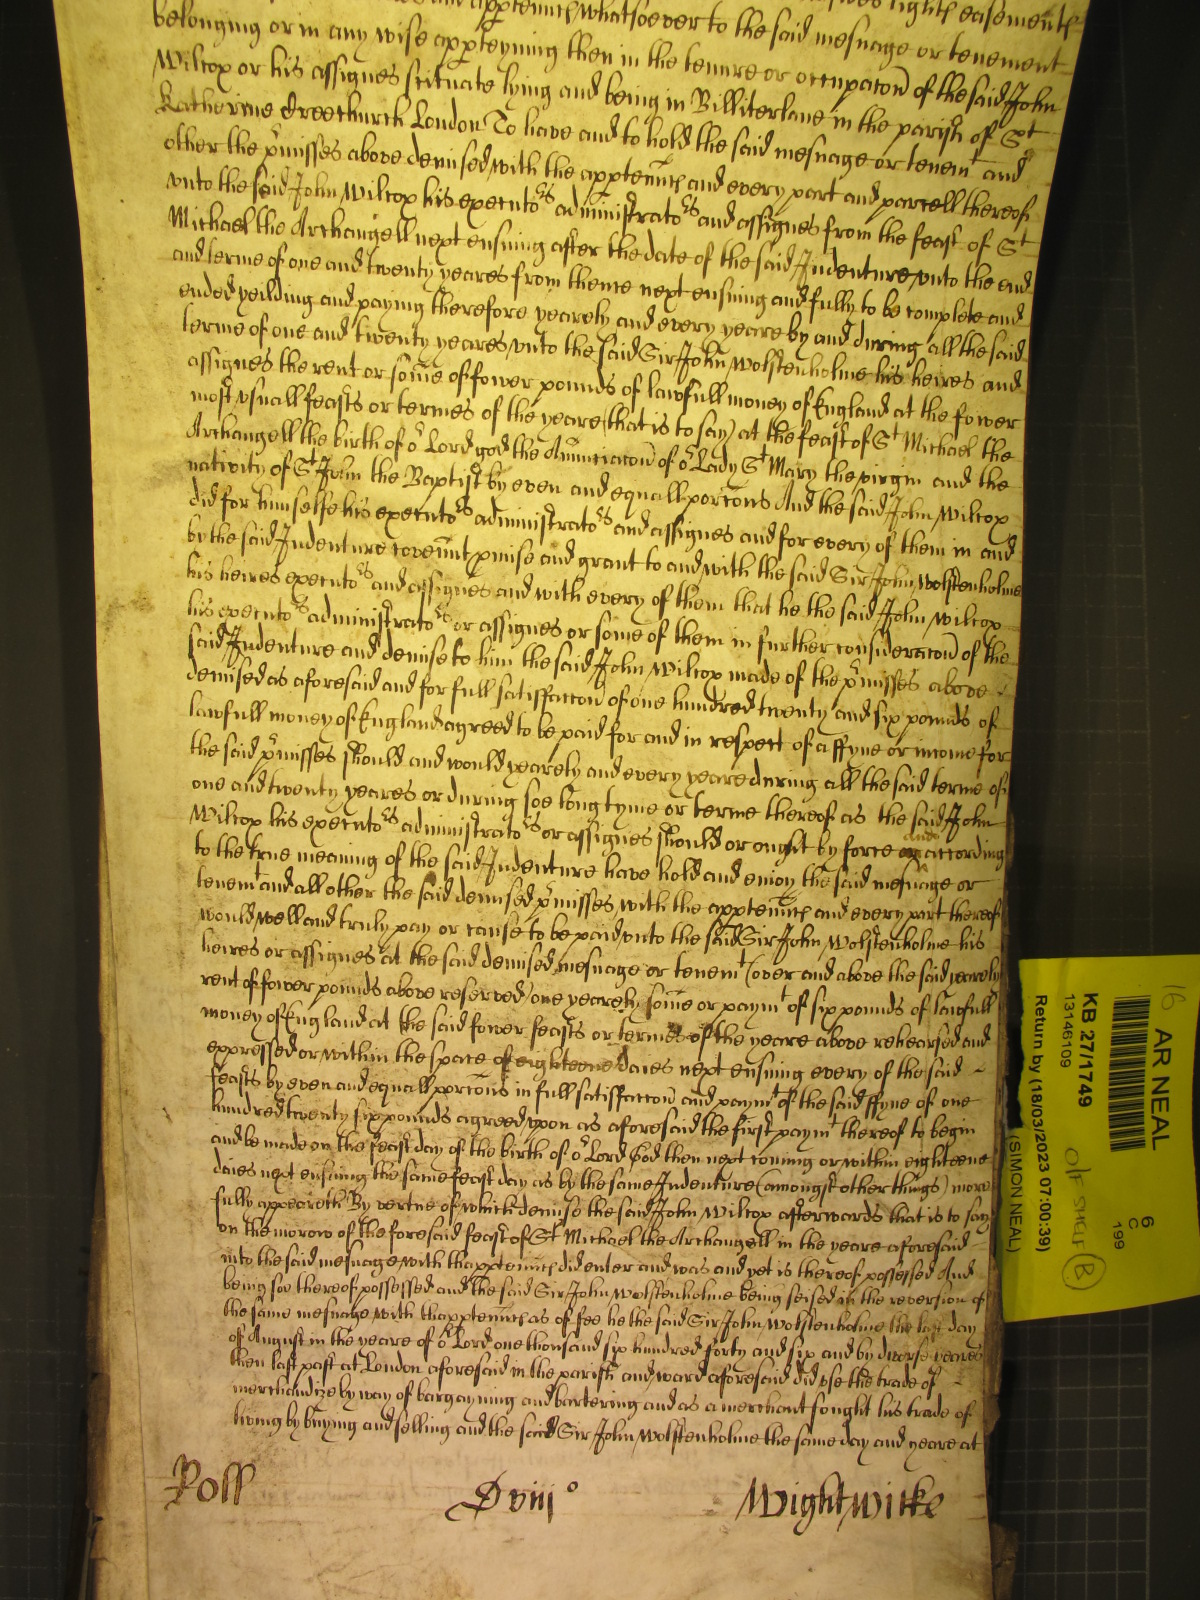 and apptennc whatsoever to the said mesuage or tenement
belonging or in any wise appteyning then in the tenure or occupacon of the said John
Wilcox or his assignes scituate lying and being in Billiterlane in the parish of St
Katherine Creechurch London To have and to hold the said mesuage or tenemt and
other the pmisses above demised with the apptennc and every part and parcell thereof
unto the said John Wilcox his executors administrators and assignes from the feast of St
Michael the Archangell next ensuing after the date of the said Indenture unto the end
and terme of one and twenty yeares from thence next ensuing and fully to be complete and
ended yeilding and paying therefore yearely and every yeare by and during all the said
terme of one and twenty yeares unto the said Sir John Wolstenholme his heires and
assignes the rent or some of fower pounds of lawfull money of England at the fower
most usuall feasts or termes of the yeare (that is to say) at the feast of St Michael the
Archangell the birth of or Lord god the Anunciacon of or Lady St Mary the virgin and the
nativity of St John the Baptist by even and equall porcons And the said John Wilcox
did for himselfe his executors administrators and assignes and for every of them in and
by the said Indenture covennt pmise and grant to and with the said Sir John Wolstenholme
his heires executors and assignes and with every of them that he the said John Wilcox
his executors administrators or assignes or some of them in further consideracon of the
said Indenture and demise to him the said John Wilcox made of the pmisses above
demised as aforesaid and for full satisfaccon of one hundred twenty and six pounds of
lawfull money of England agreed to be paid for and in respect of a ffyne or income for
the said pmisses should and would yearely and every yeare during all the said terme of
one and twenty yeares or during soe long tyme or terme thereof as the said John
Wilcox his executors administrators or assignes should or ought by force and according
to the true meaning of the said Indenture have hold and enioy the said mesuage or
tenemt and all other the said demised pmisses with the apptennc and every part thereof
would well and truly pay or cause to be paid unto the said Sir John Wolstenholme his
heires or assignes at the said demised mesuage or tenemt (over and above the said yearely
rent of fower pounds above reserved) one yearely some or paymt of six pounds of lawfull
money of England at the said fower feasts or termes of the yeare above rehearsed and
expressed or within the space of eighteene daies next ensuing every of the said
feasts by even and equall porcons in full satisfaccon and paymt of the said ffyne of one
hundred twenty six pounds agreed upon as aforesaid the first paymt thereof to begin
and be made on the feast day of the birth of or Lord God then next coming or within eighteene
daies next ensuing the same feast day as by the same Indenture (amongst other things) more
fully appeareth By vertue of which demise the said John Wilcox afterwards that is to say
on the morow of the foresaid feast of St Michael the Archangell in the yeare aforesaid
into the said mesuage with thapptennc did enter and was and yet is thereof possessed And
being soe thereof possessed and the said Sir John Wolstenholme being seised in the reversion of
the same mesuage with thapptennc as of fee he the said Sir John Wolstenholme the last day
of August in the yeare of or Lord one thousand six hundred forty and six and by diverse yeares
then last past at London aforesaid in the parish and ward aforesaid did use the trade of
merchandize by way of bargayning and bartering and as a merchant sought his trade of
living by buying and selling and the said Sir John Wolstenholme the same day and yeare at
Roll Dviijo Wightwicke
16 AR NEAL
6
C
199
KB 27/1749
13146109
Off Shelf (B)
Return by (18/03/2023 07:00:39)
(SIMON NEAL)